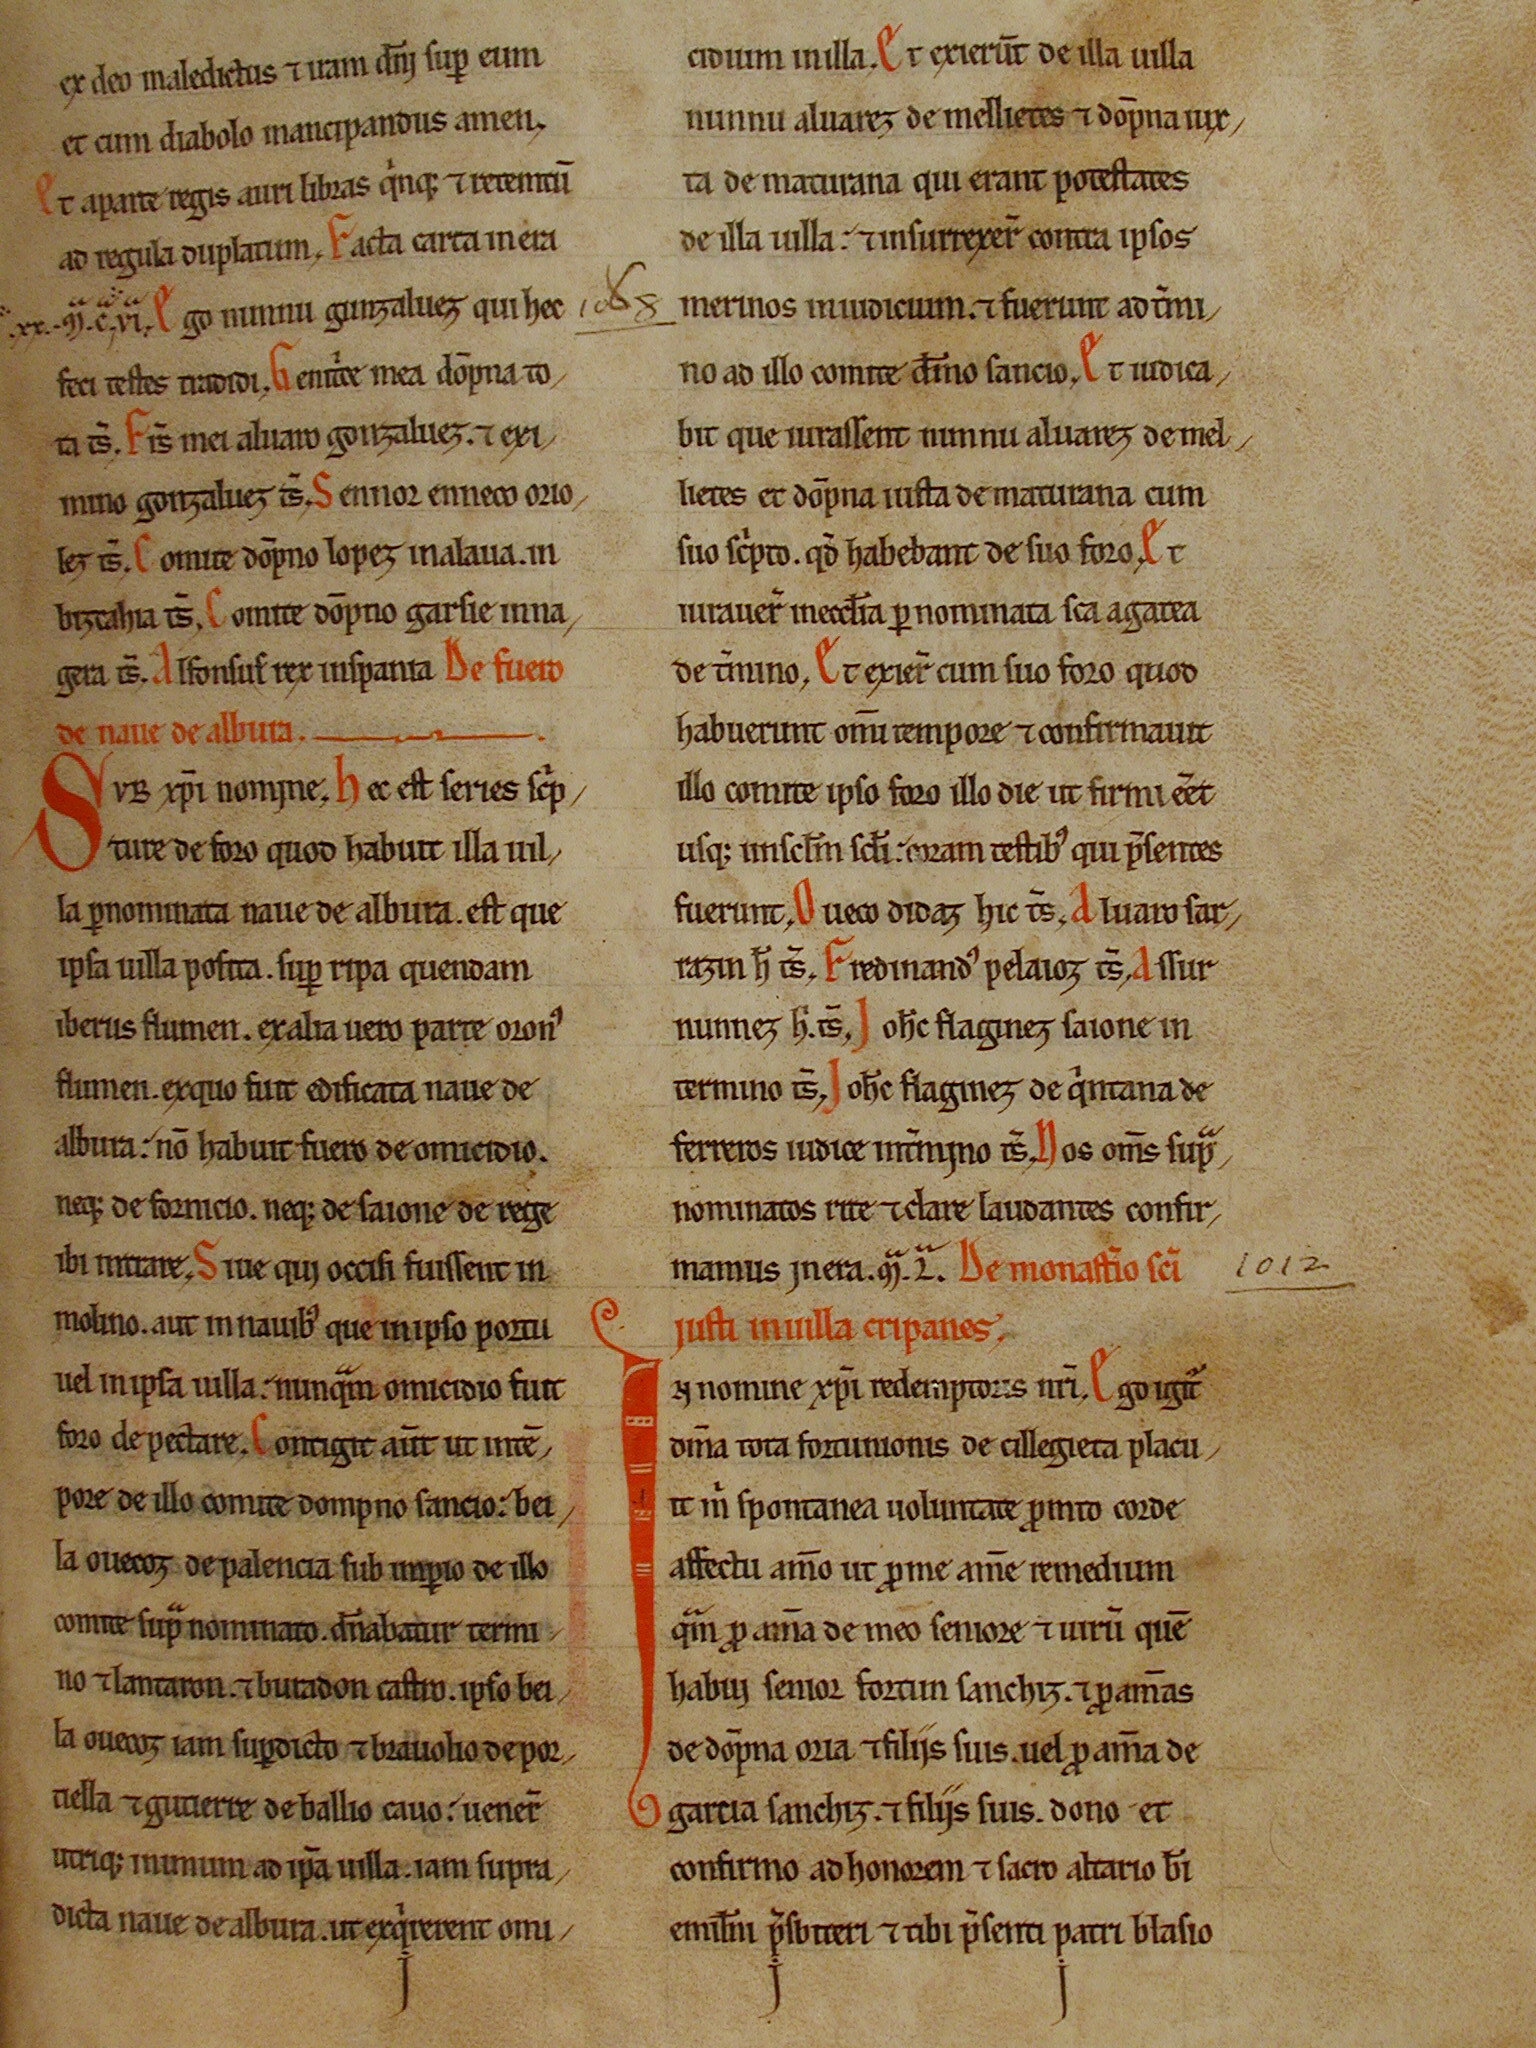 ex deo maledictus ⁊ uam dn̄j sup̄ eum
et cum diabolo mancipandus amen.
Et aparte regis auri libras q̇nq; ⁊ retemtū
ad regula duplatum. Facta carta in era
Ego nunnu gunzaluez qui hec
feci testes tradidi. Genit̄ce mea dōpna to/
ta ts̄. Fr̄s mei aluaro gonzaluez. ⁊ exi/
mino gonzaluez ts̄. Sennor enneco orio/
lez ts̄. Comite dōpno lopez in alaua. in
bizcahia ts̄. Comite dōpno garsie in na/
gera ts̄. Alfonsus rex in spania De fuero
de naue de albura.
SVB xp̄i nomjne. Hec est series scͥp/
ture de foro quod habuit illa uil/
la p̄nominata naue de albura. est que
ipsa uilla posita. sup̄ ripa quendam
iberus flumen. ex alia uero parte oron᾿
flumen. ex quo fuit edificata naue de
albura: nō habuit fuero de omicidio.
neq; de fornicio. neq; de saione de rege
ibi intrare. Siue quj occisi fuissent in
molino. aut in nauib᾿ que in ipso portu
uel in ipsa uilla: nunqᵃm omicidio fuit
foro de pectare. Contigit aūt ut in tē/
pore de illo comite dompno sancio: bei/
la ouecoz de palencia sub imp̄io de illo
comite supᵃ nominato. dn̄abatur termi/
no ⁊ lantaron. ⁊ buradon castro. ipso bei/
la ouecoz iam sup̄dicto ⁊ brauolio de por/
tiella ⁊ gutierre de ballio cauo: uener̄
utriq; in unum ad ip̄a uilla. iam supra/
dicta naue de albura. ut exq̇rerent omi/
1068
cidium in illa. Et exierūt de illa uilla
nunnu aluarez de mellietes ⁊ dōpna iux/
ta de maturana qui erant potestates
de illa uilla: ⁊ insurrexer̄ contra ipsos
merinos in iudicium. ⁊ fuerunt ad t̄mi/
no ad illo comite dōmno sancio. Et iudica/
bit que iurassent nunnu aluarez de mel/
lietes et dōpna iusta de maturana cum
suo scͥpto. qd̄ habebant de suo foro. Et
iurauer̄ in eccl̄ia p̄ nominata sc̄a agatea
de t̄mino. Et exier̄ cum suo foro quod
habuerunt om̄i tempore ⁊ confirmauit
illo comite ipso foro illo die ut firmi ēēt
usq; in sc̄l̄m sc̄l̄i: coram testib᾿ qui p̄sentes
fuerunt. Oueco didaz hic ts̄. Aluaro sar/
razin h̄ ts̄. Fredinand᾿ pelaioz ts̄. Assur
nunnez h̄. ts̄. Joh̄c flaginez saione in
termino ts̄. Joh̄c flaginez de q̇ntana de
ferreros iudice in t̄mjno ts̄. Nos om̄s supᵃ/
nominatos rite ⁊ clare laudantes confir/
mamus jn era. ᴍᵃ. Lᵃ. De monast̄io sc̄i
1012
justi in uilla cripanes.
IN nomine xp̄i redemptoris nr̄i. Ego igiͭ
dn̄a tota fortunionis de cillegieta placu/
it m̄ spontanea uoluntate p̄mto corde
affectu amō ut p̄ me am̄e remedium
qᵃm p̄ am̄a de meo seniore ⁊ uirū quē
habuj senior fortun sanchiz. ⁊ p̄ am̄as
de dōpna oria ⁊ filijs suis. uel p̄ am̄a de
garcia sanchiz. ⁊ filijs suis. dono et
confirmo ad honorem ⁊ sacro altario b̄i
emil̄ni p̄sbiteri ⁊ tibi p̄senti patri blasio